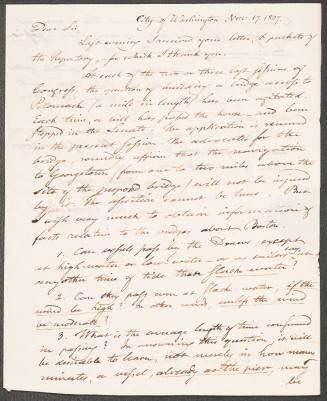 City of Washington Nov. 17. 1807.
Dear Sir,
Last evening I received your letter, & packets of
the Repertory, for which I thank you.
At each of the two or three last sessions of
Congress, the question of building a bridge across the
Potomack (a mile in length) has been agitated.
Each time, a bill has passed the house, and been
stopped in the Senate. The application is renewed
in the present session. The advocates for the
bridge, roundly affirm that the navigation
to Georgetown (from one to two miles above the
site of the proposed bridge) will not be injured
by it. The assertion cannot be true. But
I wish very much to obtain information of
facts relative to the bridges about Boston.
1. Can vessels pass by the Draws, except
at high-water or low water - or as sailors say,
any other time of tide than slack water?
2. Can they pass even at slack water, if the
wind be high? In other words, unless the wind
be moderate?
3. What is the average length of time consumed
in passing? In answering this question, it will
be desirable to learn, not merely in how many
minutes, a vessel, already at the pier, may
be